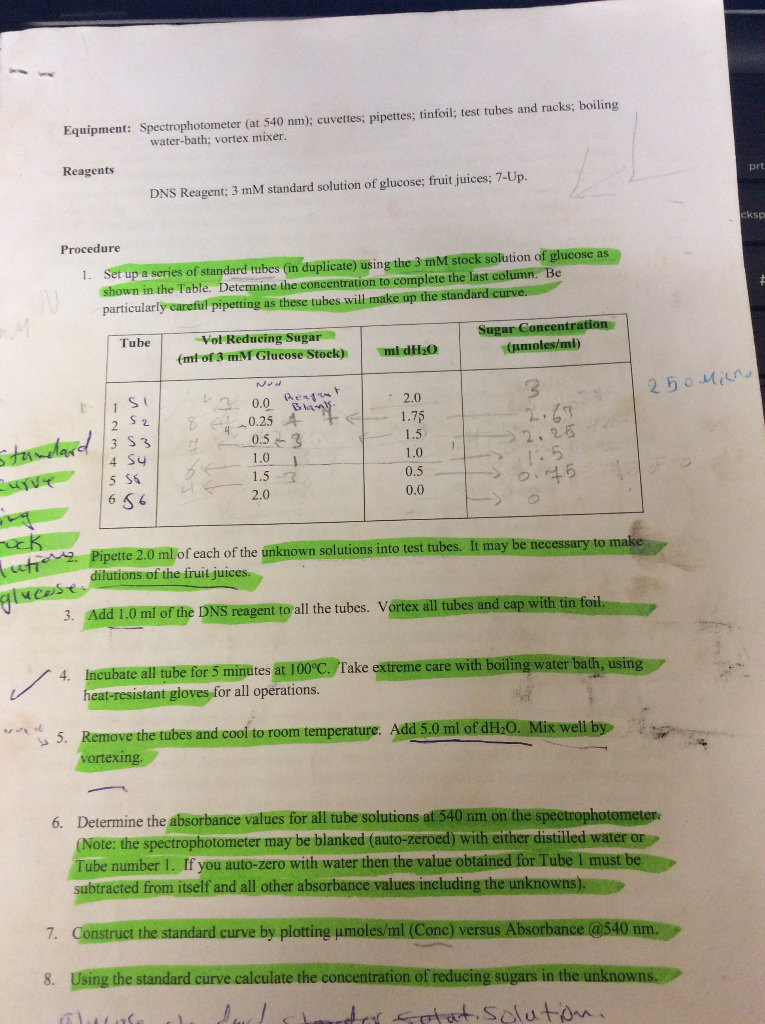 Equipment: Spectrophotometer (at 540 nm); cuvettes; pipettes; tinfoil; test tubes and racks; boiling
water-bath; vortex mixer.
Reagents
DNS Reagent; 3 mM standard solution of glucose; fruit juices; 7-Up.
Procedure
1. Set up a series of standard tubes (in duplicate) using the 3 mM stock solution of glucose as
shown in the Table. Determine the concentration to complete the last column. Be
particularly careful pipetting as these tubes will make up the standard curve.
Tube Vol Reducing Sugar (ml of 3 mM Glucose Stock) ml dH₂O Sugar Concentration (µmoles/ml)
1 S1 0.0 Reagent Blank. 2.0 3
2 S2 0.25 1.75 2.67
3 S3 0.5 3 1.5 2.25
4 S4 1.0 1 1.0 1.5
5 S5 1.5 3 0.5 0.75
6 S6 2.0 0.0 0
250 Micro
Standard
curve
glucose.
2. Pipette 2.0 ml of each of the unknown solutions into test tubes. It may be necessary to make
dilutions of the fruit juices.
3. Add 1.0 ml of the DNS reagent to all the tubes. Vortex all tubes and cap with tin foil.
4. Incubate all tube for 5 minutes at 100°C. Take extreme care with boiling water bath, using
heat-resistant gloves for all operations.
5. Remove the tubes and cool to room temperature. Add 5.0 ml of dH₂O. Mix well by
vortexing.
6. Determine the absorbance values for all tube solutions at 540 nm on the spectrophotometer.
(Note: the spectrophotometer may be blanked (auto-zeroed) with either distilled water or
Tube number 1. If you auto-zero with water then the value obtained for Tube 1 must be
subtracted from itself and all other absorbance values including the unknowns).
7. Construct the standard curve by plotting µmoles/ml (Conc) versus Absorbance @540 nm.
8. Using the standard curve calculate the concentration of reducing sugars in the unknowns.
Solution.
prt